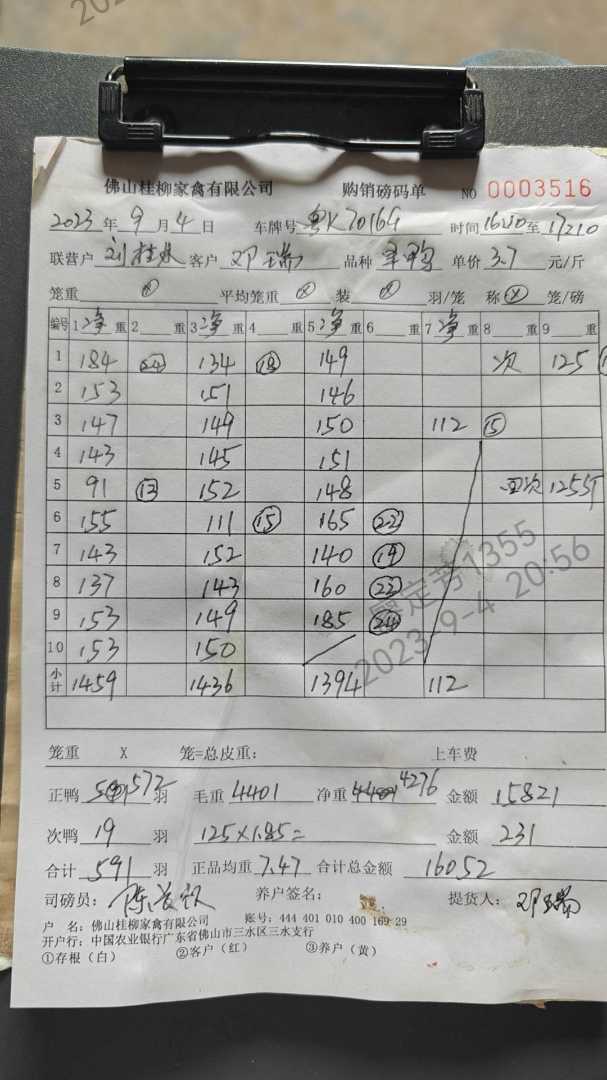 佛山桂柳家禽有限公司 购销磅码单 NO 0003516
2023年9月4日 车牌号粤K7016G 时间16:10至17:10
联营户 客户 邓瑞 品种 单价3.7元/斤
笼重 ⊗ 平均笼重 ⊗ 装 ⊗ 羽/笼 称 ⊗ 笼/磅
编号 1净重 2重 3净重 4重 5净重 6重 7净重 8重 9重
1 184 ㉔ 134 ⑱ 149 次 125
2 153 151 146
3 147 149 150 112 ⑮
4 143 145 151
5 91 ⑬ 152 148 次 125斤
6 155 111 ⑮ 165 ㉒
7 143 152 140 ⑲
8 137 143 160 ㉒
9 153 149 185 ㉔
10 153 150
小计 1459 1436 1394 112
笼重 X 笼=总皮重: 上车费
正鸭 572羽 毛重 4401 净重 4276 金额 15821
次鸭 19 羽 125×1.85= 金额 231
合计 591 羽 正品均重 7.47 合计总金额 16052
司磅员: 养户签名: 提货人: 邓瑞
户 名: 佛山桂柳家禽有限公司 账号: 444 401 010 400 169 29
开户行: 中国农业银行广东省佛山市三水区三水支行
①存根（白） ②客户（红） ③养户（黄）
1355
2023-9-4 20:56